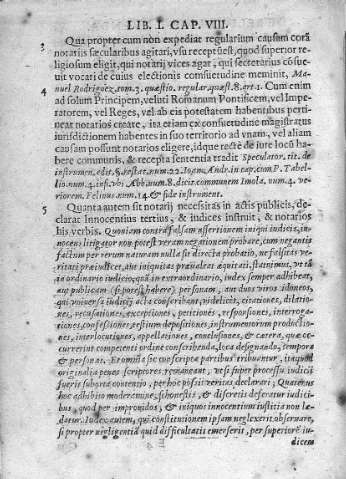 LIB. I. CAP. VIII.
3 Quapropter cum non expediat regularium causam corã
notariis sæcularibus agitari, vsu receptũ est, quod superior re-
ligiosum eligit, qui notarij vices agat, qui secretarius cõsue-
uit vocari de cuius electionis comsuetudine meminit, Ma-
4 nuel Rodriguez, tom. 3. quæstio. regular. quæst. 8. art. 1. Cum enim
ad solum Principem, veluti Romanum Pontificem, vel Impe-
ratorem, vel Reges, vel ab eis potestatem habentibus perti-
neat notarios creare, ita etiam ex consuetudine magistratus
iurisdictionem habentes in suo territorio ad vnam, vel aliam
causam possunt notarios eligere, idque recte de iure locũ ha-
bere communis, & recepta sententia tradit Speculator. tit. de
instrumen. edit. §. restat. num. 22. Ioan. Andr. in cap. com P. Tabel-
lio. num. 4. inf. vbi Abb. num. 8. dicit communem Imola. num. 4. ve-
riorem. Felinus num. 14. & fide instrument.
5 Quanta autem sit notarij necessitas in actis publicis, de-
clarat Innocentius tertius, & iudices instruit, & notarios
his verbis. Quoniam contra falsam assertionem iniqui iudicis, in-
nocens litigator non potest veram negationem probare, cum negantis
factum per rerum naturam nulla sit directa probatio, ne falsitas ve-
ritati præiudicet, aut iniquitas præualeat æquitati, statuimus, vt tã
in ordinario iudicio, quã in extraordinario, iudex semper adhibeat,
aut publicam (si potest habere) personam, aut duos viros idoneos,
qui vniuersa iudicij acta conscribant, videlicet, citationes, dilatio-
nes, recusationes, exceptiones, petitiones, responsiones, interroga-
tiones, confessiones, testium depositiones, instrumentorum productio-
nes, interlocutiones, appellationes, conclusiones, & cætera, quæ oc-
currerint competenti ordine conscribenda, loca designando, tempora
& personas. Et omnia sic conscripta partibus tribuantur, ita quod
originalia penes scriptores remaneant, vt si super processu iudicij
fuerit suborta contentio, per hoc possit veritas declarari; Quatenus
hoc adhibito moderamine, sic honestis, & discretis deferatur iudici-
bus, quod per improuidos, & iniquos innocentium iustitia non læ-
datur. Iudex autem, qui constitutionem ipsam neglexerit obseruare,
si propter negligentiã quid difficultatis emerserit, per superiorẽ iu-
dicem